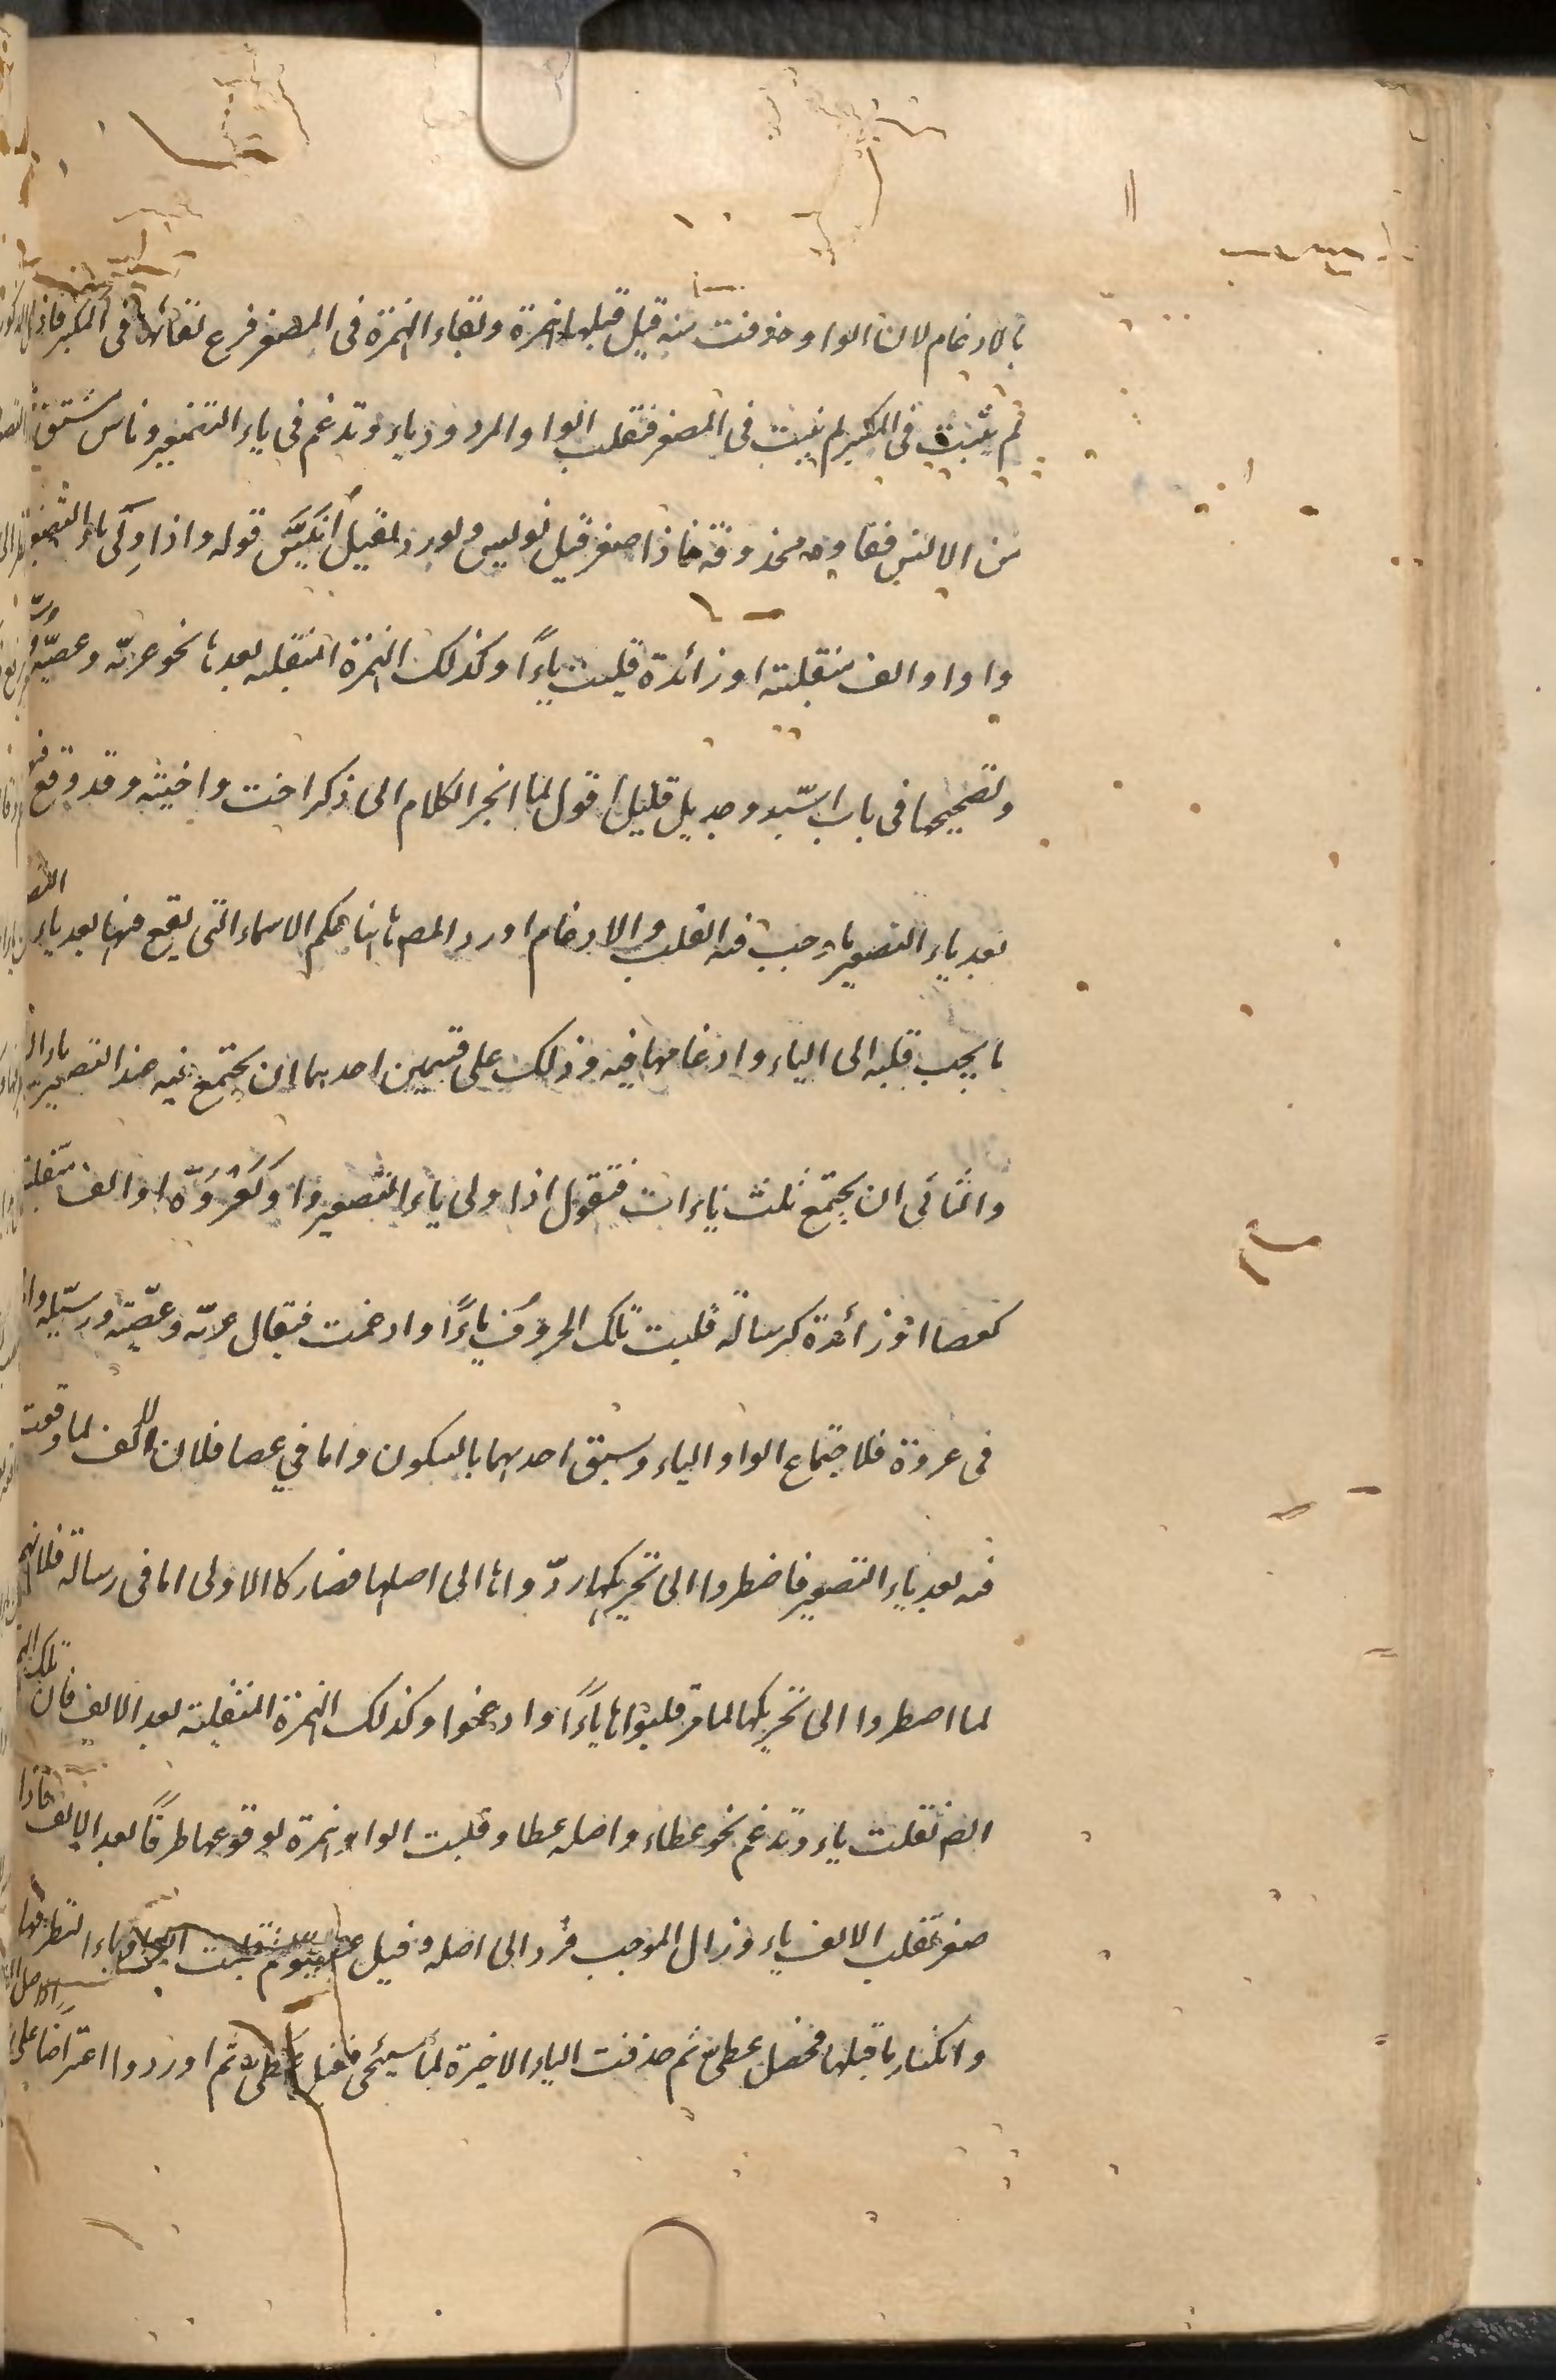 بالادغام لان الواو حذفت منه قيل قبلها همزة وبقاء الهمزة فى المصغر فرع بقائها فى المكبر فاذا
لم يثبت فى المكبر لم يثبت فى المصغر فتقلب الواو المردود ياء وتدغم فى ياء التصغير وناس مشتق
من الانس ففاوه محذوفة فاذا صغر قيل نويس ولو رد لقيل اُنَيِّس قوله واذا وَلِىَ ياء التصغير
واو او الف منقلبة او زائدة قلبت ياءً وكذلك الهمزة المنقلبة بعدها نحو عريّة وعصيّة
وتصحيحها فى باب اسيود وجديول قليل اقول لما انجر الكلام الى ذكر اخت واخية وقد وقع فيه
بعد ياء التصغير ياء وجب فيه القلب والادغام اورد المص هاهنا حكم الاسماء التى يقع فيها بعد ياء
ما يجب قلبه الى الياء وادغامها فيه وذلك على قسمين احدهما ان يجتمع فيه عند التصغير ياءان
والثانى ان يجتمع ثلث ياءات فنقول اذا ولى ياء التصغير واو كعُرْوَة او الف منقلبة
كعصا او زائدة كرسالة قلبت تلك الحروف ياءً وادغمت فيقال عريّة وعصيّة ورسيّلة
فى عروة فلاجتماع الواو والياء وسبق احديهما بالسكون واما فى عصا فلان الالف لما وقعت
فيه بعد ياء التصغير فاضطروا الى تحريكها ردّوها الى اصلها فصار كالاولى اما فى رسالة فلانهم
لما اضطروا الى تحريكها لما مر قلبوها ياءً وادغموا وكذلك الهمزة المنقلبة بعد الالف فان تلك
ايضا تقلب ياء وتدغم نحو عطاء واصله عطاو قلبت الواو همزة لوقوعها طرفًا بعد الالف فاذا
صغر تقلب الالف ياء وزال الموجب فرد الى اصله وقيل ثم قلبت الواو ياء لتطرفها
وانكسار ما قبلها فحصل عطيى ثم حذفت الياء الاخيرة لما سيجئ فقيل عطى ثم اوردوا اعتراضا على